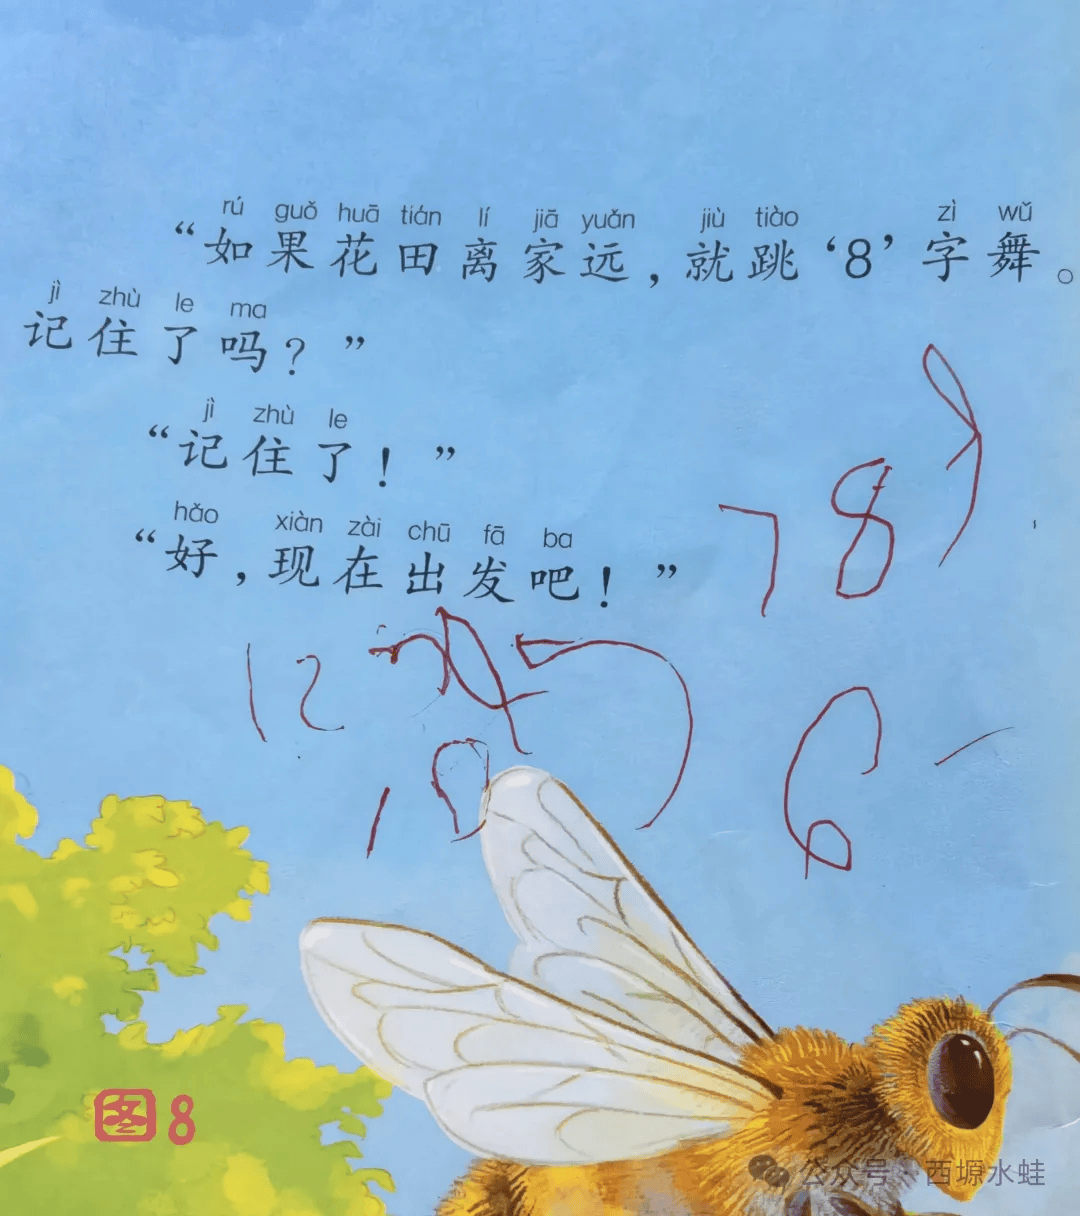 rú guǒ huā tián lí jiā yuǎn jiù tiào zì wǔ
“如果花田离家远，就跳‘8’字舞。
jì zhù le ma
记住了吗？”
jì zhù le
“记住了！”
hǎo xiàn zài chū fā ba
“好，现在出发吧！”
7 8 9
12
10
6
图8
公众号·西塬水蛙